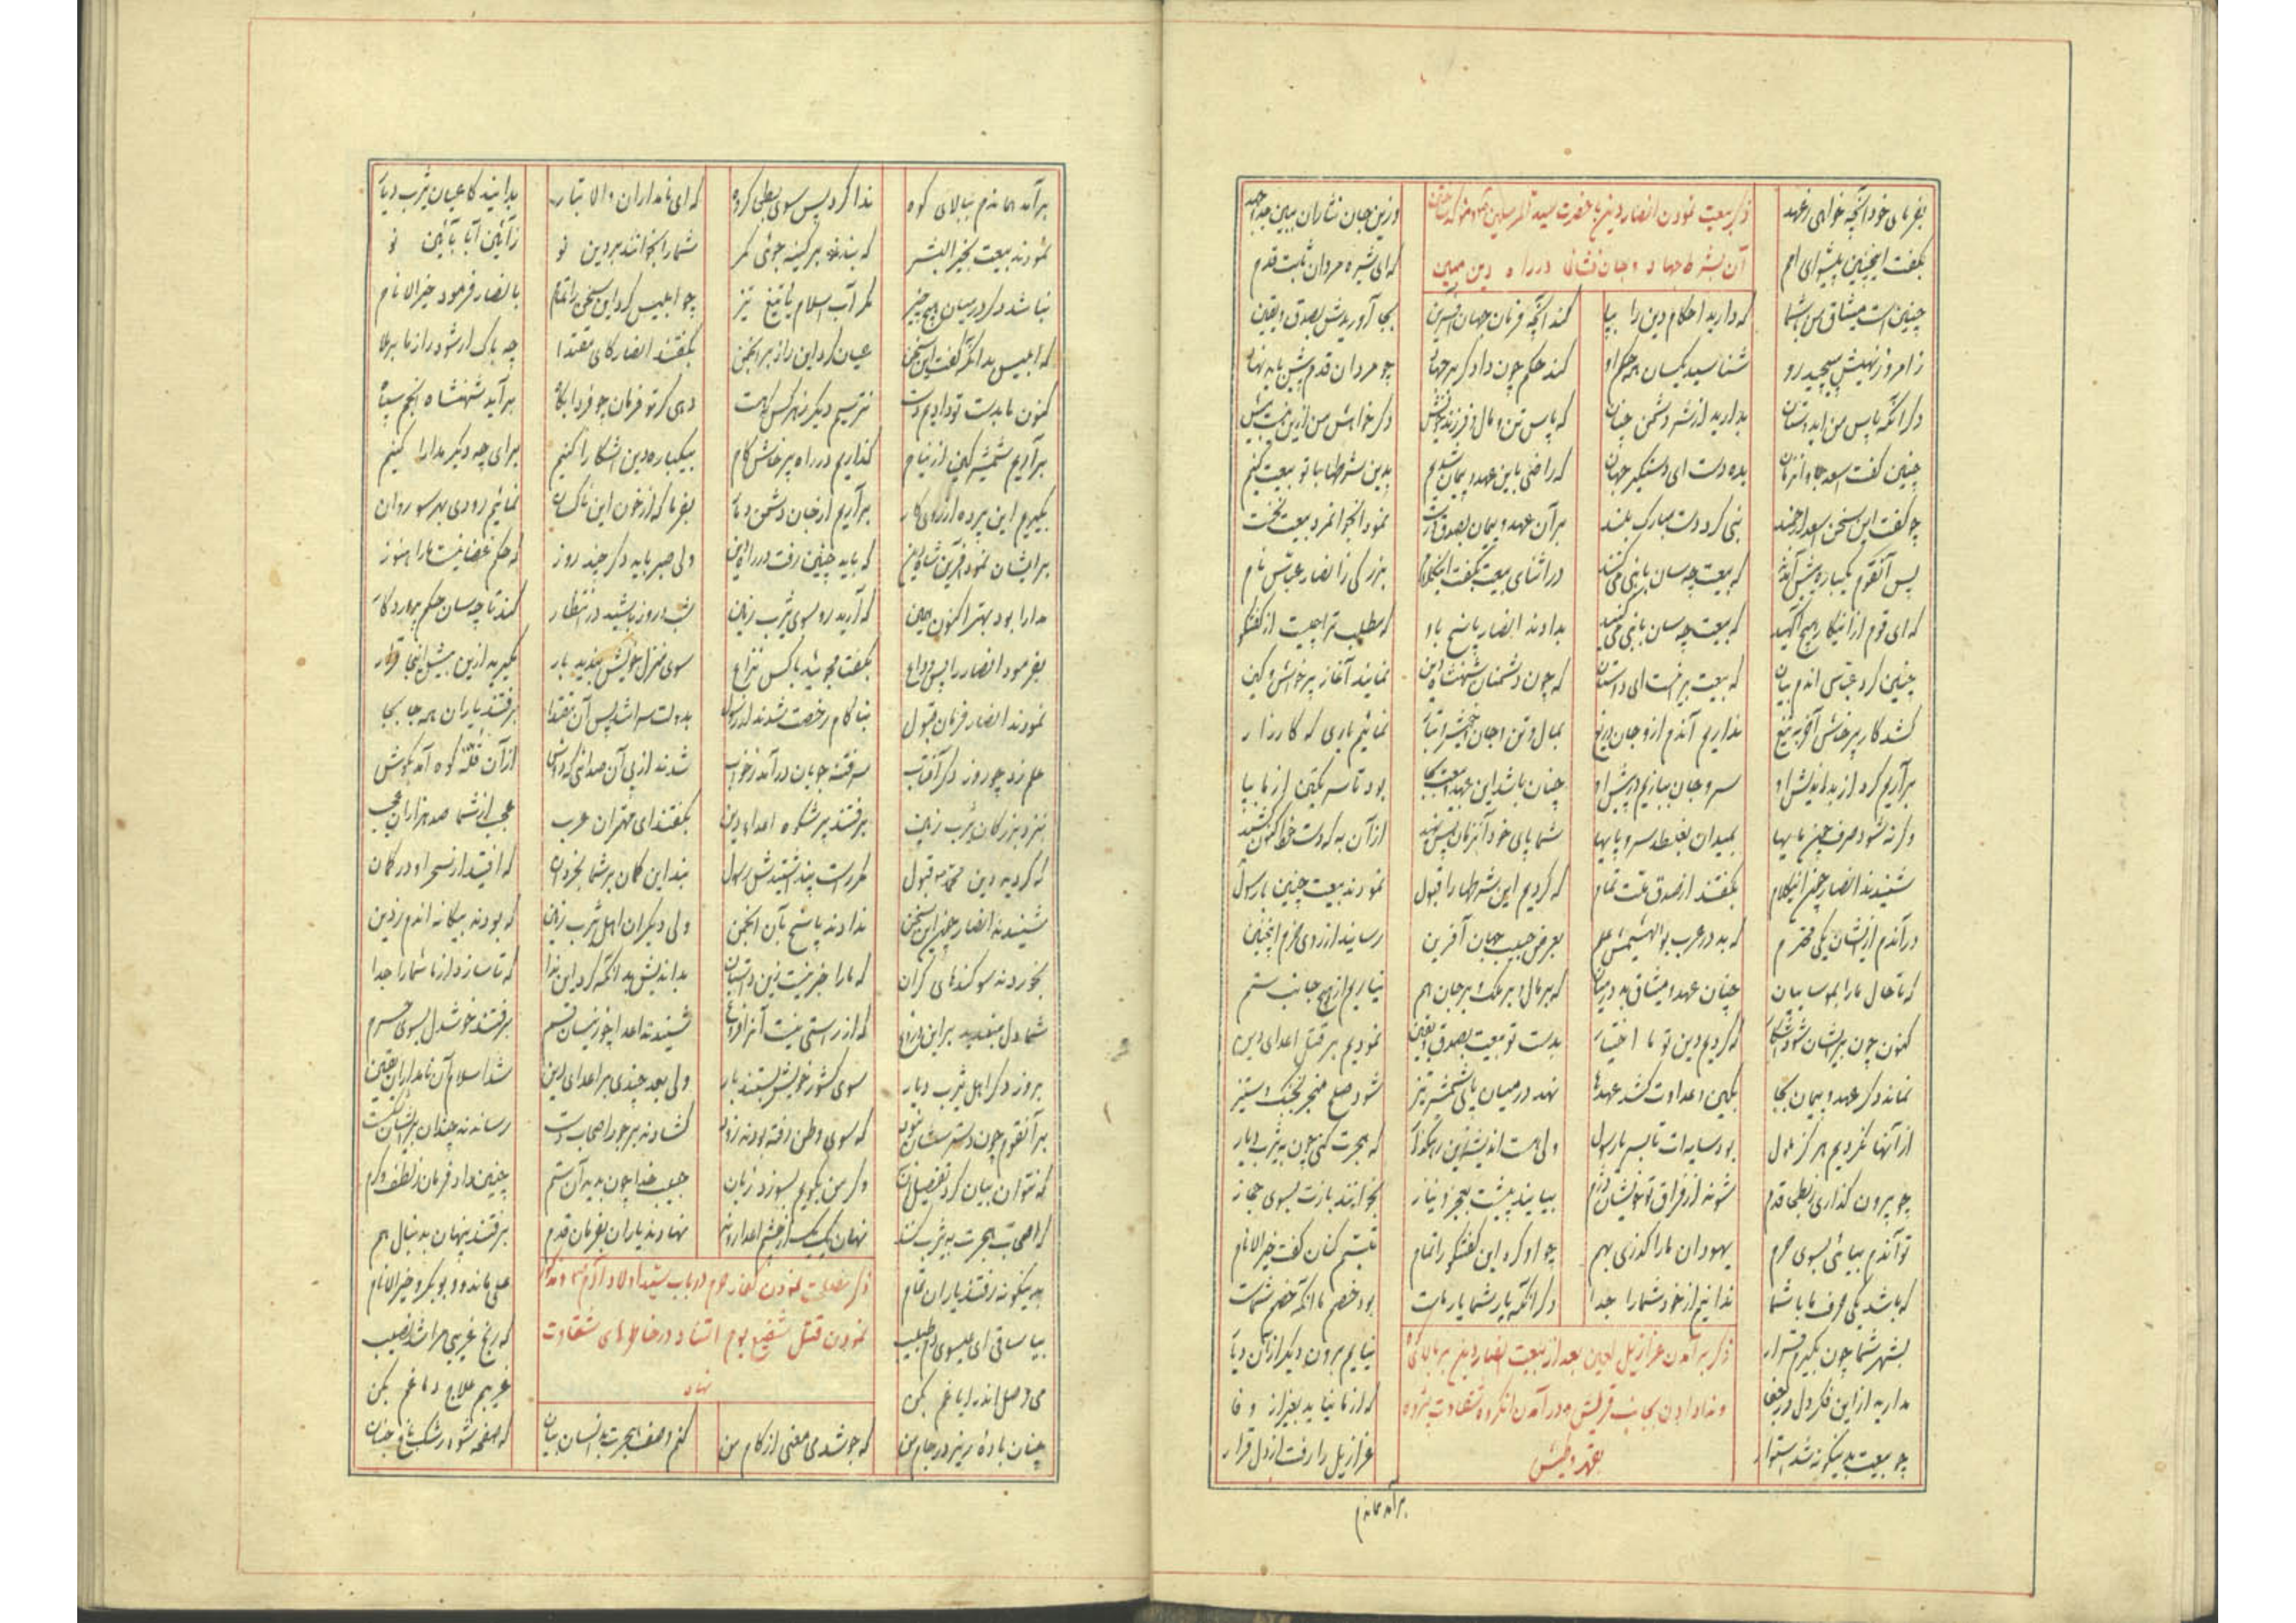 بفرمای خود آنچه خواهی ز عهد
وزین جان نثاران ببین جد و جهد
ذکر بیعت نمودن انصار دین با حضرت سید المرسلین
آن بشرط جهاد و جان فشانی در راه دین مبین
بگفت اینچنین پیشوای امم
که ای شیره مردان ثابت قدم
چنین است میثاق من با شما
که دارید احکام دین را بپا
کند آنچه فرمان جهان آفرین
بجا آوریدش بصدق و یقین
ز امر و ز نهیش مپیچید رو
شناسید یکسان همه حکم او
کند حکم چون دادگر بر جهاد
چو مردان قدم پیش باید نهاد
دگر آنکه پاس من ای دوستان
بدارید از شر دشمن چنان
که پاس تن و مال و فرزند خویش
دگر خواهش من ازین نیست بیش
چنین گفت اسعد
بده دست ای دستگیر جهان
که راضی باین عهد و پیمان شدیم
بدین شرطها با تو بیعت کنیم
چو گفت این سخن اسعد ارجمند
نبی کرد دست مبارک بلند
بر آن عهد و پیمان بصدق درست
نمود آن جوانمرد بیعت نخست
پس آنقوم یکباره پیش آمدند
که بیعت چه سان با نبی می کنند
در اثنای بیعت بگفت این کلام
بزرگی ز انصار عباس نام
که ای قوم ازین کار هیچ آگهید
که بیعت چه سان با نبی می کنید
بدادند انصار پاسخ باو
که مطلب ترا چیست از گفتگو
چنین کرد عباس اندم بیان
که بیعت برینست ای دوستان
که چون دشمنان شهنشاه دین
نمایند آغاز پرخاش و کین
کشد کار پرخاش آخر به تیغ
نداریم آندم ازو جان دریغ
بمال و تن و جان
نمائیم یاری که کارزار
برآریم گرد از بداندیش او
سر و جان ببازیم در پیش او
چنان باشد این عهد و بیعت بجا
بود تا سر یکتن از ما بپا
وگرنه شود صرف چین با بها
بمیدان بغلطد سر و پا بها
شما پای خود آنزمان پس نهید
از آن به که دست خطا کنون کشید
شنیدند انصار چون این کلام
بگفتند از صدق نیت تمام
که کردیم این شرطها را قبول
نمودند بیعت چنین با رسول
در آندم ازیشان یکی محترم
که بد در عرب بو الهیثمش علم
بعرض حبیب جهان آفرین
رسانید از روی عزم اینچنین
که تا حال ما را بموسائیان
چنان عهد و میثاق بد در میان
که بر مال و بر ملک و بر جان هم
نیاریم از هیچ جانب ستم
کنون چون بریشان شود آشکار
که کردیم دین تو ما اختیار
بدست تو بیعت بصدق و یقین
نمودیم بر قتل اعدای دین
نماند دگر عهد و پیمان بجا
بکین و عداوت کشد عهدها
نهد در میان پای شمشیر تیز
شود صلح منجر بجنگ و ستیز
از آنها نگردیم هرگز ملول
بود سایه ات تا بسر یا رسول
ولی هست اندیشه زین رهگذار
که هجرت کنی چون به یثرب دیار
چو بیرون گذاری ز بطحی قدم
شوند از فراق تو خویشان دژم
بیایند پیشت بعجز و نیاز
بخوانند بازت بسوی حجاز
تو آندم بیائی بسوی حرم
یهودان ما را گدازی بهم
چو او کرد این گفتگو را تمام
تبسم کنان گفت خیر الانام
که باشد یکی حرف ما با شما
ندانیم از خود شما را جدا
دگر آنکه یار شما یار ماست
بود خصم ما آنکه خصم شماست
بشهر شما چون بگیرم قرار
نیایم برون دیگر از آن دیار
ذکر برآمدن عزازیل لعین بعد از بیعت انصار دین بر بالای کوه
و ندا دادن بجانب قریش و در آمدن آنگروه شقاوت پژوه
بقهر و طیش
مدارید ازین فکر دل در
که از ما نیاید بغیر از وفا
چو بیعت بدینگونه شد استوار
عزازیل را رفت از دل قرار
برآمد هماندم
برآمد هماندم ببالای کوه
ندا کرد پس سوی بطحی گروه
که ای نامداران والا تبار
بدانید کاعیان یثرب دیار
نمودند بیعت بخیر البشر
که بندند بر کینه جوئی کمر
شما را بخوانند بر دین نو
ز آئین آبا بآئین نو
نباشد دگر در میان هیچ چیز
مگر آب اسلام یا تیغ تیز
چو ابلیس کرد این سخن را تمام
بانصار فرمود خیر الانام
که ابلیس بد آنکه گفت این سخن
عیان کرد این راز بر انجمن
بگفتند انصار کای مقتدا
چه باک ار شود راز ما برملا
کنون ما بدست تو دادیم دست
نترسیم دیگر ز هر کس که هست
دهی گر تو فرمان چو فردا پگاه
برآید شهنشاه انجم سپاه
برآریم شمشیر کین از نیام
گذاریم در راه پرخاش گام
بیکباره دین آشکارا کنیم
برای چه دیگر مدارا کنیم
بگیریم این پرده از روی کار
برآریم از جان دشمن دمار
بفرما که از خون این ناکسان
نمائیم رودی بهر سو روان
بر ایشان نمود آفرین شاه دین
که باید چنین رفت در راه دین
ولی صبر باید دگر چند روز
که حکم غضا نیست ما را هنوز
مدارا بود بهتر اکنون همین
که آرید رو سوی یثرب زمین
شب و روز باشید در انتظار
کند تا چه سان حکم پروردگار
بفرمود انصار را پس وداع
بگفت مجوئید با کس نزاع
سوی منزل خویش بندید بار
مگیرید ازین بیش اینجا قرار
نمودند انصار فرمان قبول
بناکام رخصت شدند از رسول
بدولت سرا شد پس آن مقتدا
برفتند یاران همه جا بجا
علم زد چو روز دگر آفتاب
سر فتنه جویان درآمد ز خواب
شدند از پی آن صدائی که دوش
از آن قله کوه آمد بگوش
بنزد بزرگان یثرب زمین
برفتند پر شکوه اعدای دین
بگفتند ای مهتران عرب
عجب از شما صد هزاران عجب
که کردید دین محمد قبول
مگر راست پنداشتیدش رسول
بند این گمان بر شما بخردان
که افتید از سحر او در گمان
شنیدند انصار چون این سخن
ندادند پاسخ بآن انجمن
ولی دیگران اهل یثرب زمین
که بودند بیگانه اندم ز دین
بخوردند سوگندهای گران
که ما را خبر نیست زین داستان
بداندیش بد آنکه کرد این ندا
که تا سازد از ما شما را جدا
شما دل مبندید بر این دروغ
که از راستی نیست آنرا فروغ
شنیدند اعدا چو زیشان قسم
برفتند خوشدل بسوی حرم
بروز دگر اهل یثرب دیار
سوی کشور خویش بستند بار
ولی بعد چندی بر اعدای دین
شد اسلام آن نامداران یقین
بر آنقوم چون دسترسشان نبود
که سوی وطن رفته بودند زود
گشادند بر جور اصحاب دست
رساندند چندان بر ایشان شکست
که نتوان بیان کرد تفصیل آن
وگر من بگویم بسوزد زبان
حبیب خدا چون بدید آن ستم
چنین داد فرمان ز لطف و کرم
که اصحاب هجرت به یثرب کنند
نهان یک بیک از چشم اعدا روند
نهادند یاران بفرمان قدم
برفتند پنهان بدنبال هم
بدینگونه رفتند یاران تمام
علی ماند و بوبکر و خیر الانام
ذکر مصلحت نمودن کفار حرم در باب سید اولاد آدم و
نمودن قتل شفیع یوم التناد در خاطرهای شقاوت
نهاد
بیا ساقی ای عیسوی دم طبیب
که رنج غریبی مرا شد نصیب
می وصل اندر ایاغم بکن
غریبم علاج دماغم بکن
چنان باده ریز در جام من
که جوشد می معنی از کام من
کنم وصف هجرت بدانسان بیان
که صفحه شود رشک باغ جنان